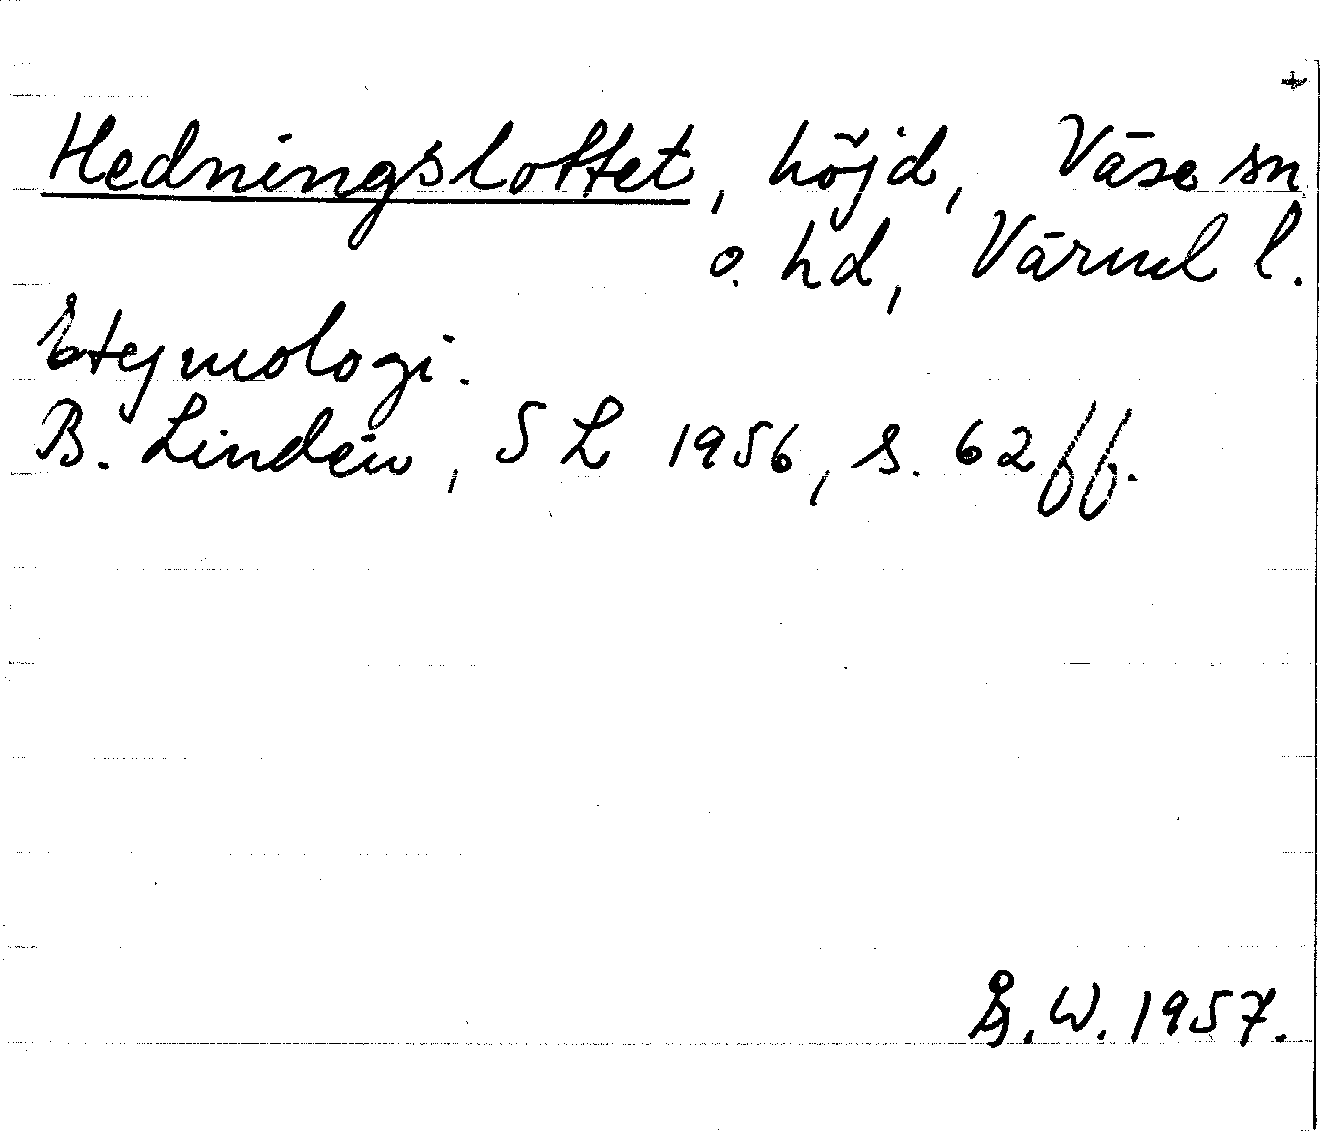 +
Hedningslottet, höjd, Väse sn
o. hd, Värml l.
Etymologi.
B. Lindén, SL 1956, s. 62 ff.
Å. W. 1957.